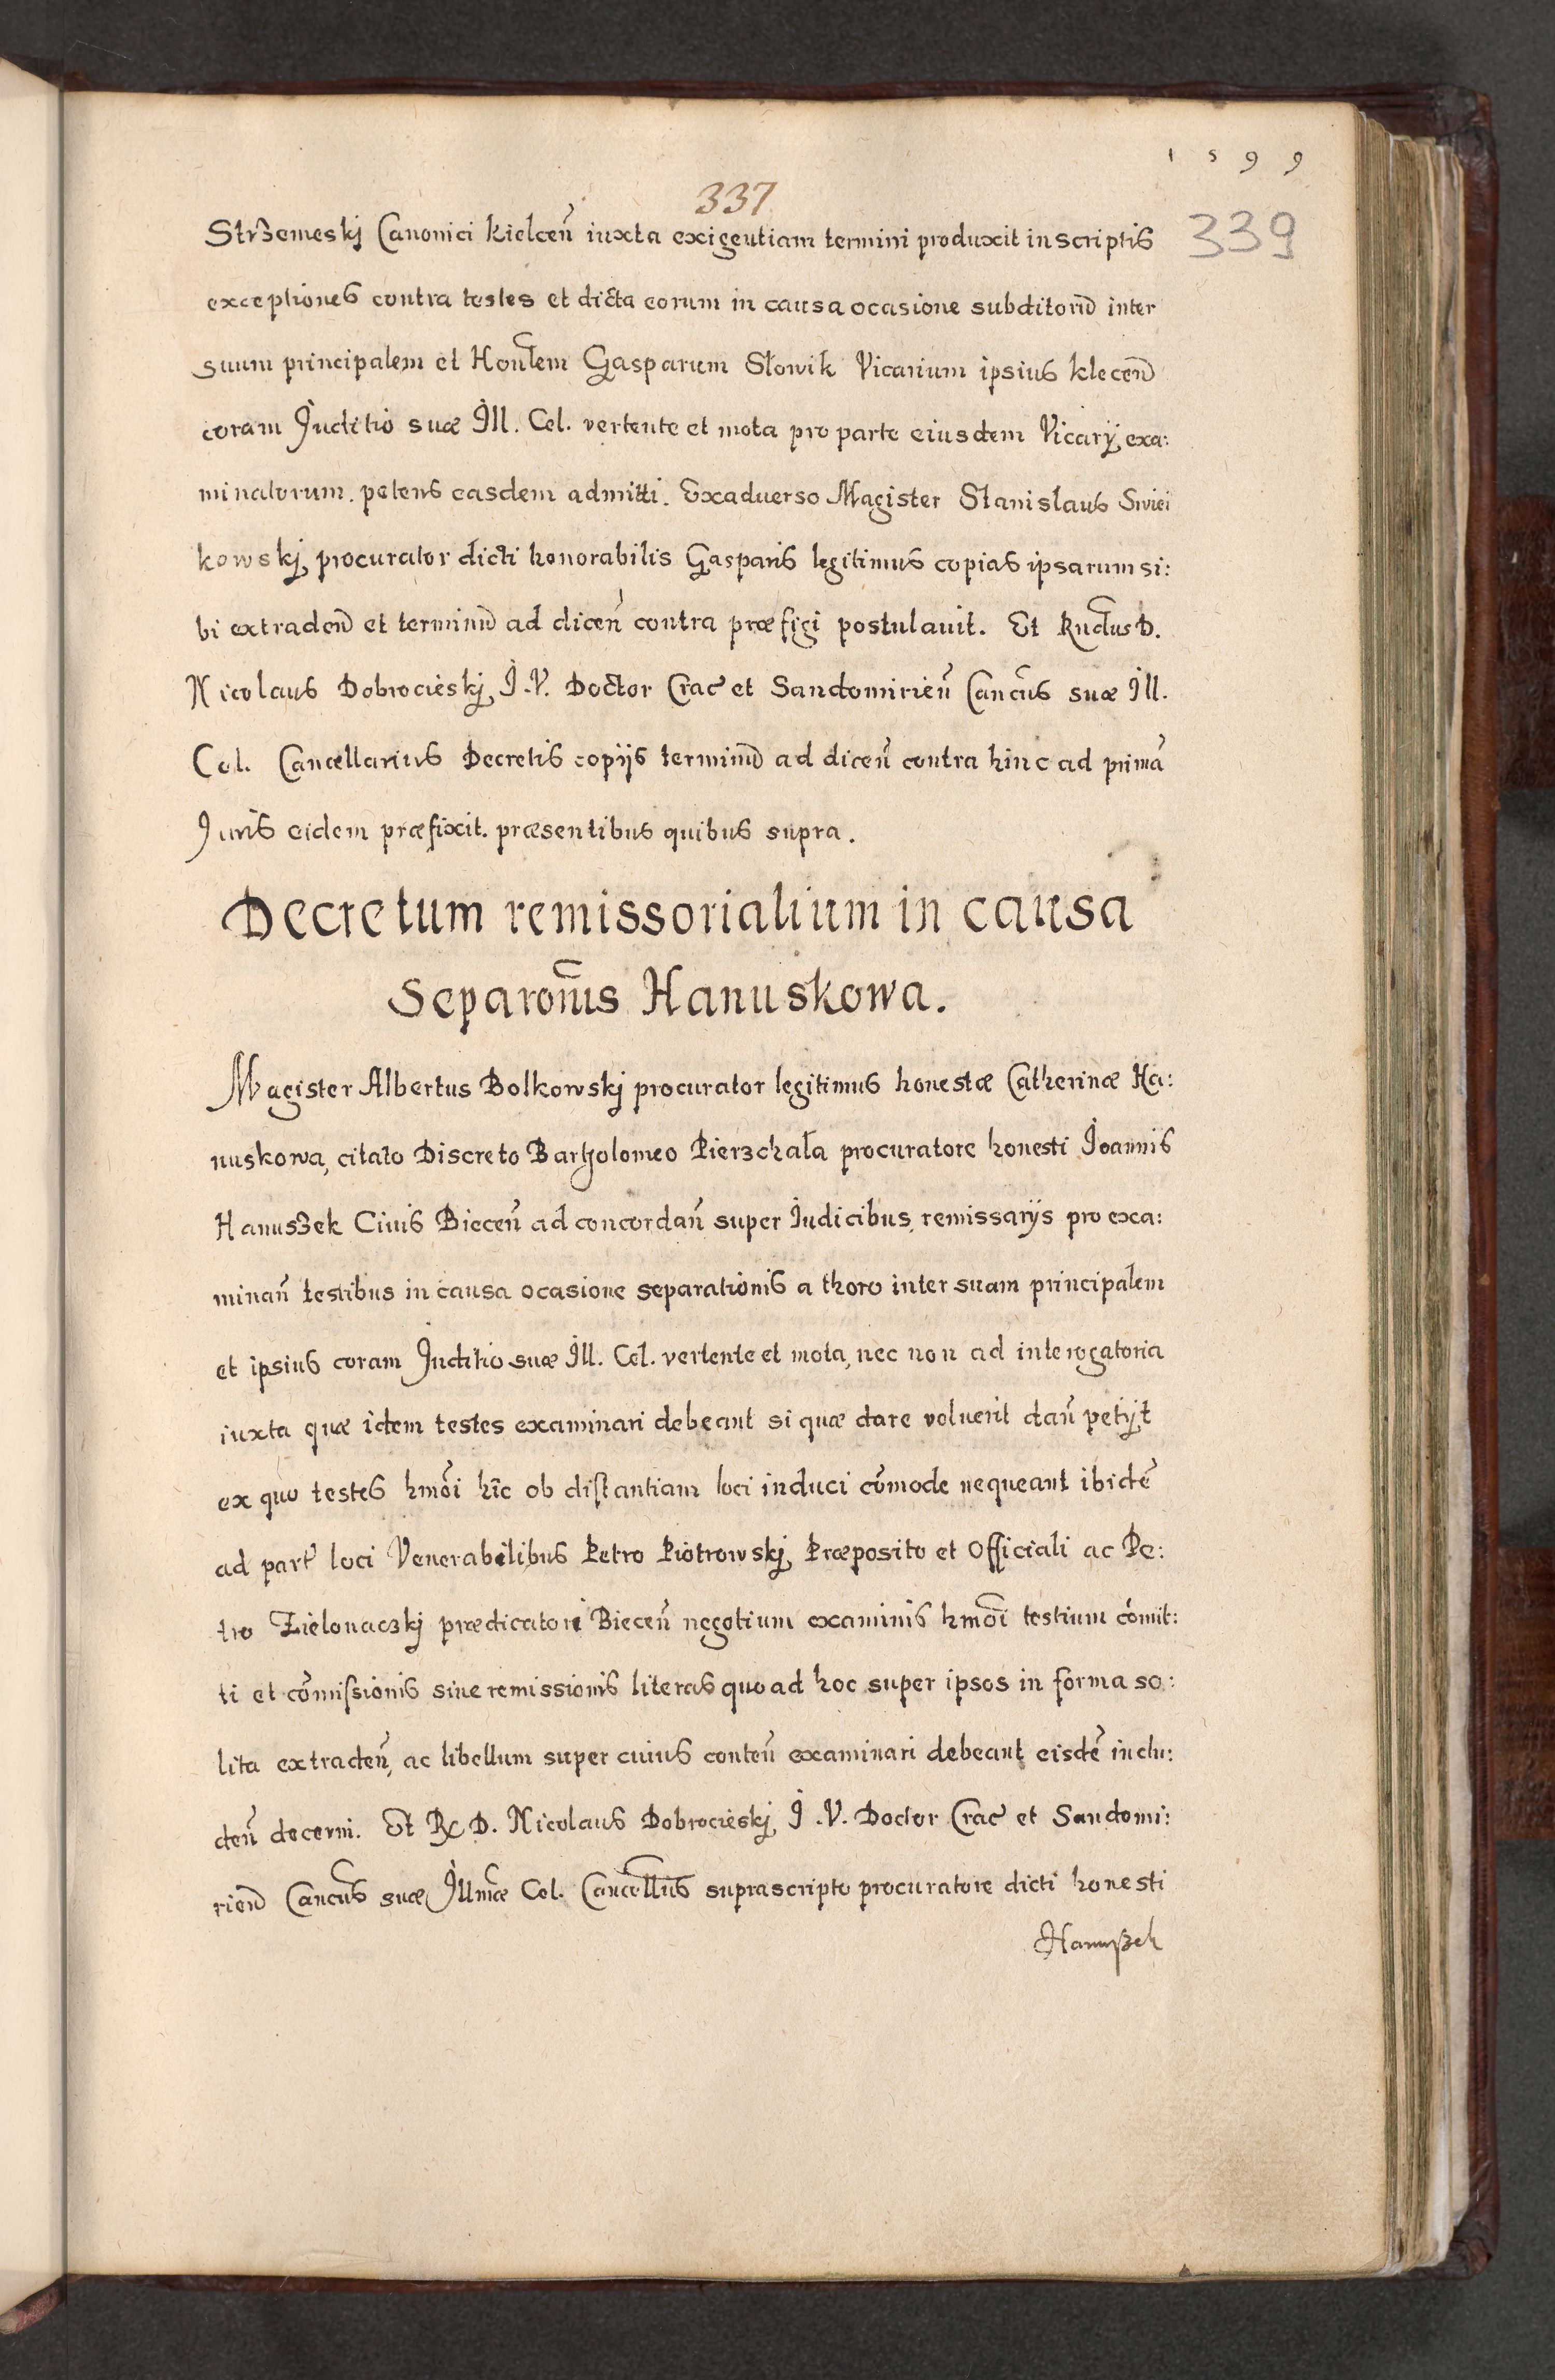 1599
337
339
Strzemeskj Canonici kielcen̄ iuxta exigentiam termini produxit in scriptis
exceptiones contra testes et dicta eorum in causa ocasione subditorū inter
suum principalem et Honlem Gasparum Słowik Vicarium ipsius klecen̄
coram Juditio suæ Ill. Cel. vertente et mota pro parte eiusdem Vicarÿ exa:
minatorum. petens easdem admitti. Exaduerso Magister Stanislaus Swiei
kowskj procurator dicti honorabilis Gasparis legitimus copias ipsarum si:
bi extraden̄ et terminū ad dicen̄ contra præfigi postulauit. Et Rndus D.
Nicolaus Dobrocieskj I.V. Doctor Crac̄ et Sandomirien̄ Cancus suæ Ill.
Cel. Cancellarius Decretis copijs terminū ad dicen̄ contra hinc ad primā
Juris eidem præfixit. præsentibus quibus supra.
Decretum remissorialium in causa
Separonis Hanuskowa.
Magister Albertus Bolkowskj procurator legitimus honestæ Catherinæ Ha:
nuskowa, citato Discreto Bartholomeo Pierzchała procuratore honesti Joannis
Hanuszek Ciuis Biecen̄ ad concordan̄ super Iudicibus, remissarÿs pro exa:
minan̄ testibus in causa ocasione separationis a thoro inter suam principalem
et ipsius coram Juditio suæ Ill. Cel. vertente et mota, nec non ad interogatoria
iuxta quæ idem testes examinari debeant si quæ dare voluerit dan̄ petÿt
ex quo testes hmōi hīc ob distantiam loci induci cōmode nequeant ibidē
ad part̄ loci Venerabilibus Petro Piotrowskj Præposito et Officiali ac Pe:
tro Zielonaczkj prædicatori Biecen̄ negotium examinis hmōi testium cōmit:
ti et cōmissionis siue remissionis literas quo ad hoc super ipsos in forma so:
lita extraden̄, ac libellum super cuius conten̄ examinari debeant eisdē inclu:
den̄ decerni. Et R. D. Nicolaus Dobrocieskj I.V. Doctor Crac̄ et Sandomi:
rien̄ Cancus suæ Illmæ Cel. Cancellus suprascripto procuratore dicti honesti
Hanuszek